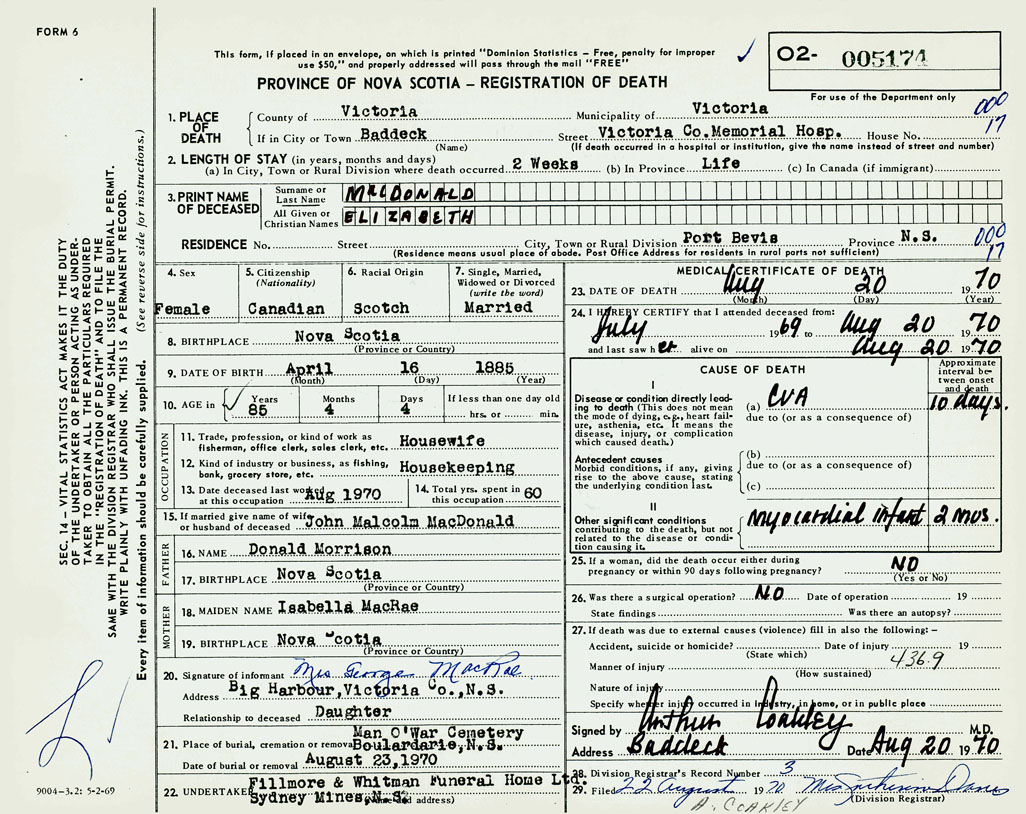 FORM 6
This form, if placed in an envelope, on which is printed "Dominion Statistics – Free, penalty for improper
use $50," and properly addressed will pass through the mail "FREE"
✓
O2- 005174
For use of the Department only
PROVINCE OF NOVA SCOTIA – REGISTRATION OF DEATH
1. PLACE OF DEATH County of Victoria Municipality of Victoria 000
If in City or Town Baddeck Street Victoria Co.Memorial Hosp. House No. 17
(Name) (If death occurred in a hospital or institution, give the name instead of street and number)
2. LENGTH OF STAY (in years, months and days)
(a) In City, Town or Rural Division where death occurred 2 Weeks (b) In Province Life (c) In Canada (if immigrant)
3. PRINT NAME OF DECEASED Surname or Last Name MacDONALD
All Given or Christian Names ELIZABETH
RESIDENCE No. Street City, Town or Rural Division Port Bevis Province N.S. 000
(Residence means usual place of abode. Post Office Address for residents in rural parts not sufficient) 17
4. Sex Female
5. Citizenship (Nationality) Canadian
6. Racial Origin Scotch
7. Single, Married, Widowed or Divorced (write the word) Married
8. BIRTHPLACE Nova Scotia
(Province or Country)
9. DATE OF BIRTH April 16 1885
(Month) (Day) (Year)
10. AGE in ✓ Years 85 Months 4 Days 4 If less than one day old
hrs. or min.
OCCUPATION
11. Trade, profession, or kind of work as fisherman, office clerk, sales clerk, etc. Housewife
12. Kind of industry or business, as fishing, bank, grocery store, etc. Housekeeping
13. Date deceased last worked at this occupation Aug 1970
14. Total yrs. spent in this occupation 60
15. If married give name of wife or husband of deceased John Malcolm MacDonald
FATHER
16. NAME Donald Morrison
17. BIRTHPLACE Nova Scotia
(Province or Country)
MOTHER
18. MAIDEN NAME Isabella MacRae
19. BIRTHPLACE Nova Scotia
(Province or Country)
20. Signature of informant Mrs George MacRae
Address Big Harbour,Victoria Co.,N.S.
Relationship to deceased Daughter
21. Place of burial, cremation or removal Man O'War Cemetery
Boulardarie,N.S.
Date of burial or removal August 23,1970
22. UNDERTAKER Fillmore & Whitman Funeral Home Ltd.
Sydney Mines,N.S.
(Name and address)
MEDICAL CERTIFICATE OF DEATH
23. DATE OF DEATH Aug 20 1970
(Month) (Day) (Year)
24. I HEREBY CERTIFY that I attended deceased from:
July 1969 to Aug 20 1970
and last saw her alive on Aug 20 1970
CAUSE OF DEATH
Approximate interval between onset and death
I
Disease or condition directly leading to death (This does not mean the mode of dying, e.g., heart failure, asthenia, etc. It means the disease, injury, or complication which caused death.)
(a) CVA 10 days.
due to (or as a consequence of)
Antecedent causes
Morbid conditions, if any, giving rise to the above cause, stating the underlying condition last.
(b)
due to (or as a consequence of)
(c)
II
Other significant conditions contributing to the death, but not related to the disease or condition causing it.
Myocardial infarct 2 mos.
25. If a woman, did the death occur either during pregnancy or within 90 days following pregnancy? NO
(Yes or No)
26. Was there a surgical operation? NO Date of operation 19
State findings Was there an autopsy?
27. If death was due to external causes (violence) fill in also the following: –
Accident, suicide or homicide? Date of injury 19
(State which) 436.9
Manner of injury
(How sustained)
Nature of injury
Specify whether injury occurred in industry, in home, or in public place
Signed by Arthur Coakley M.D.
Address Baddeck Date Aug 20 1970
28. Division Registrar's Record Number 3
29. Filed 22 August 1970 Mrs
(Division Registrar)
A. COAKLEY
SEC. 14 – VITAL STATISTICS ACT MAKES IT THE DUTY
OF THE UNDERTAKER OR PERSON ACTING AS UNDER-
TAKER TO OBTAIN ALL THE PARTICULARS REQUIRED
IN THE "REGISTRATION OF DEATH" AND TO FILE THE
SAME WITH THE DIVISION REGISTRAR WHO SHALL ISSUE THE BURIAL PERMIT.
WRITE PLAINLY WITH UNFADING INK. THIS IS A PERMANENT RECORD.
Every item of information should be carefully supplied. (See reverse side for instructions.)
9004-3.2: 5-2-69